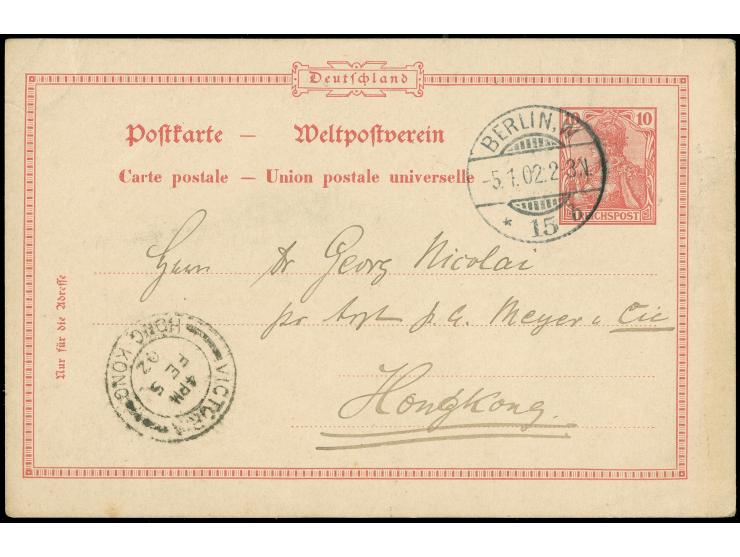 Deutschland
Postkarte — Weltpostverein
Carte postale — Union postale universelle
10 10
REICHSPOST
BERLIN, N
-5.1.02.2-3N.
* 15 b
Herrn Dr Georg Nicolai
pr Arzt p. A. Meyer & Cie
Hongkong.
Nur für die Adresse
VICTORIA
HONG KONG
4 PM
FE 5
02